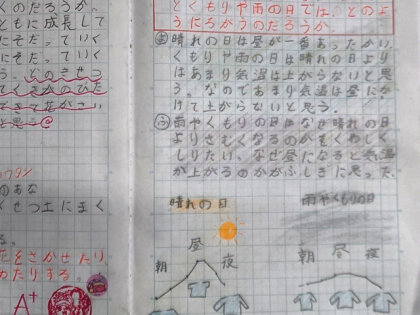 くのだろうか。
ともに成長して
にそだっていく
にそだっていく
う。どのきせつ
てくきかのひた
できて花がさい
と思う
ウタン
のあな
くせつ土にまく
る。
花をさかせたり
めたりする。
A+
とくもりや雨の日では、どのよ
うにちがうのだろうか。
よ 晴れの日は昼が一番あったかい。
くもりや雨の日は晴れの日より
はあまり気温は上がらないと思
う。なのであまり気温は昼にか
けて上がらないと思う。
ふ 雨やくもりの日はなぜ晴れの日
よりさむくなるのかをくわしく
しりたい。なぜ昼になると気温
が上がるのかがふしぎに思った。
晴れの日
雨やくもりの日
朝 昼 夜
朝 昼 夜